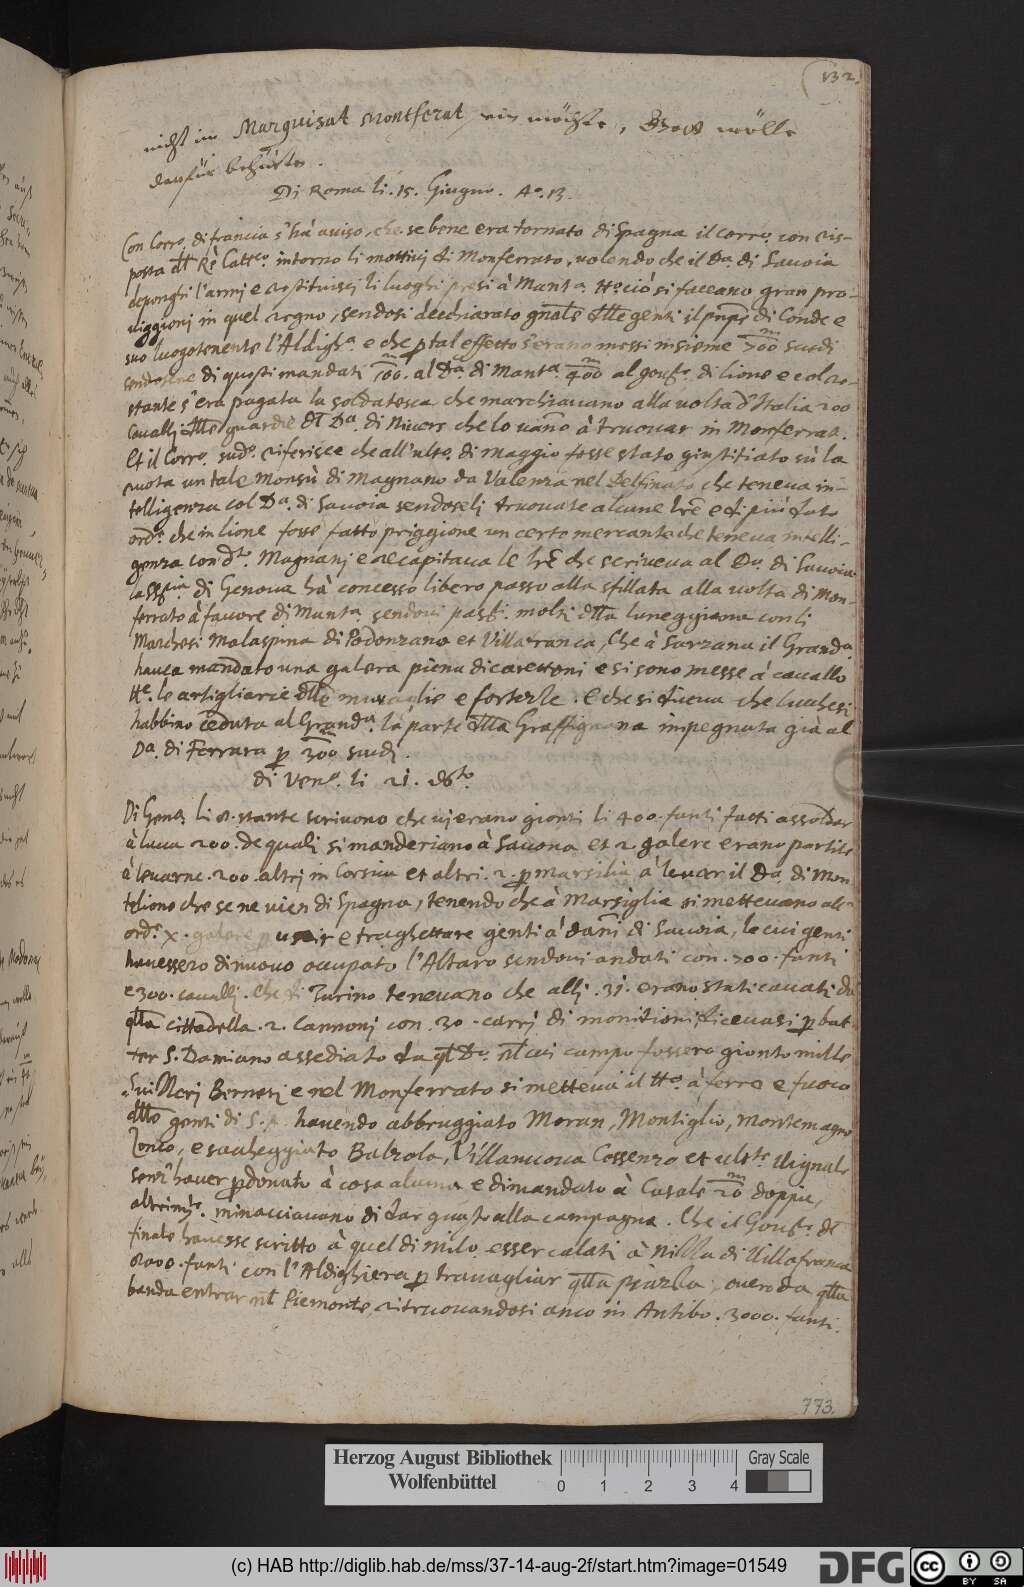 132.
nicht im Marquisat Montferat ein möchte, Gott wölle
darfür behüeten.
Di Roma li. 15. Giugno. A.o 13.
Con Corro. di francia s'hà auiso, che se bene era tornato di Spagna il corro. con ris-
posta dll Rè Cattco. intorno li mottiuj di Monferrato, uolendo che il Da. di Sauoia
deponghi l'armj e restituiscj li luoghi presi à Manta. tto. ciò si faceano gran pro-
uiggionj in quel regno, sendosi decchiarato gnale dlle genti il prnpe di Conde e
suo luogotenente l'Aldigha. e che p tal effetto s'erano messi insieme 700 scudi
sendosene di questi mandati 100. al Da. di Manta. 400 al goure. di lione e colro-
stante s'era pagata la soldatesca che marchiauano alla uolta d'Italia 200
Caualli dlle guardie dl Da. di Niuers che lo uano à truouar in Monferrato.
Et il Corro. sudo. riferisce che all'ulto. di maggio fosse stato giustitiato sù la
ruota un tale Monsù di Magnano da Valenza nel Delfinato che teneua in-
telligenza col Da. di Sauoia sendoseli truouate alcune lre e di più dato
orde. che in lione fosse fatto priggione un certo mercante che teneua intelli-
genza con do. Magnanj e recapitaua le lre che scriueua al Da. di Sauoia
la Sria. di Genoua hà concesso libero passo alla sfillata alla uolta di Mon-
ferrato à fauore di Manta. sendoui passi. molti dlla luneggiana con li
Marchesi Malaspina di Podonzano et Villafranca, Che à Sarzana il Granda.
hauea mandato una galera piena di carettoni e si sono messe à cauallo
tte. le artigliarie dlle muraglie e fortezze. E che si diceua che lucchesi
habbino ceduta al Granda. la parte dlla Graffignana impegnata già al
Da. di Ferrara p 300 scudi.
di Vena. li 21. do.
Di Gena. li 8. stante scriuono che ui erano gionti li 400. fanti fatti assoldar
à luca 200. de quali si manderiano à Sauona et 2 galere erano partite
à leuarne. 200. altri in Corsica et altri. 2. p marsilia à leuar il Da. di Mon
teliono che se ne uien di Spagna, tenendo che à Marsiglia si metteuano all'
orde. x. galere p uscir e traghettare genti à dani di Sauoia, le cui genti
hauessero di nuouo occupato l'Altaro sendoui andati con. 700. fanti
e 300. caualli. Che di Turino teneuano che alli. 31. erano stati cauati da
qlla cittadella. 2. Cannonj con. 30. carrj di monitioni, diceuasi p bat-
ter S. Damiano assediato da ql Da. nl cui campo fossero gionto mille
Suizzeri Bernesi e nel Monferrato si metteua il tto. à ferro e fuoco
dlle genti di S. A. hauendo abbruggiato Moran, Montiglio, Montemagno
Zonco, e sacheggiato Balzola, Villanuoua Cossenzo et ulte. Vignale
senz'hauer pdonato à cosa alcuna e dimandato à Casale 20 doppie,
altrimte. minacciauano di dar guasto alla campagna. Che il Goure. dl
finale hauesse scritto à quel di milo. esser calati à Nizza di Villafranca
8000. fanti con l'Aldighiera p trauagliar qlla piazza, ouero da qlla
banda entrar nl Piemonte, ritruouandosi anco in Antibo. 3000. fanti.
773.
Herzog August Bibliothek
Wolfenbüttel
0 1 2 3 4
Gray Scale
(c) HAB http://diglib.hab.de/mss/37-14-aug-2f/start.htm?image=01549
DFG
cc BY SA